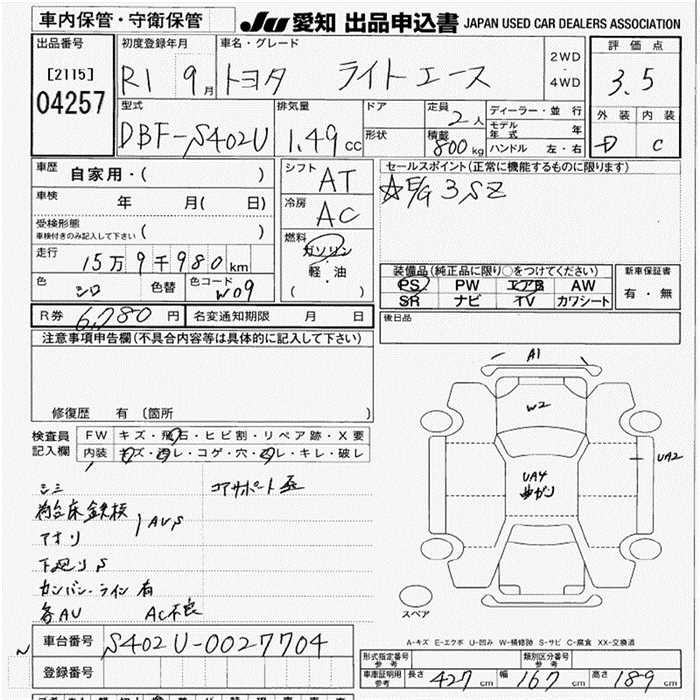 車内保管・守衛保管
JU 愛知 出品申込書 JAPAN USED CAR DEALERS ASSOCIATION
出品番号
[2115]
04257
初度登録年月
R1 9月
車名・グレード
トヨタ ライトエース
2WD
4WD
評価点
3.5
外装 内装
D C
型式
DBF-S402U
排気量
1.49 cc
ドア
形状
定員 2人
積載 800kg
ディーラー・並行
モデル年式 年
ハンドル 左・右
車歴
自家用・( )
車検
年 月( 日)
受検形態
車検付きのみ記入して下さい ( )
走行
15万9千980km
色
シロ
色替
色コード
W09
シフト
AT
冷房
AC
燃料
ガソリン
・
軽・油
( )
セールスポイント(正常に機能するものに限ります)
☆E/G 3SZ
装備品(純正品に限り○をつけてください)
PS PW エアB AW
SR ナビ TV カワシート
新車保証書
有・無
R券 6,780円
名変通知期限 月 日
後日品
注意事項申告欄(不具合内容等は具体的に記入して下さい)
修復歴 有 (箇所 )
検査員記入欄
FW キズ・飛石・ヒビ割・リペア跡・X要
内装 キズ・汚レ・コゲ・穴・汚レ・キレ・破レ
シミ
荷台床鉄板
アオリ
AUS
下廻りS
カンバン・ライン有
各AU AC不良
コアサポート歪
A1
W2
UA4
曲ガリ
UA2
スペア
A-キズ E-エクボ U-凹み W-補修跡 S-サビ C-腐食 XX-交換済
車台番号 S402U-0027704
登録番号
型式指定番号 参考
類別区分番号 参考
車庫証明用参考
長さ 427cm 幅 167cm 高さ 189cm